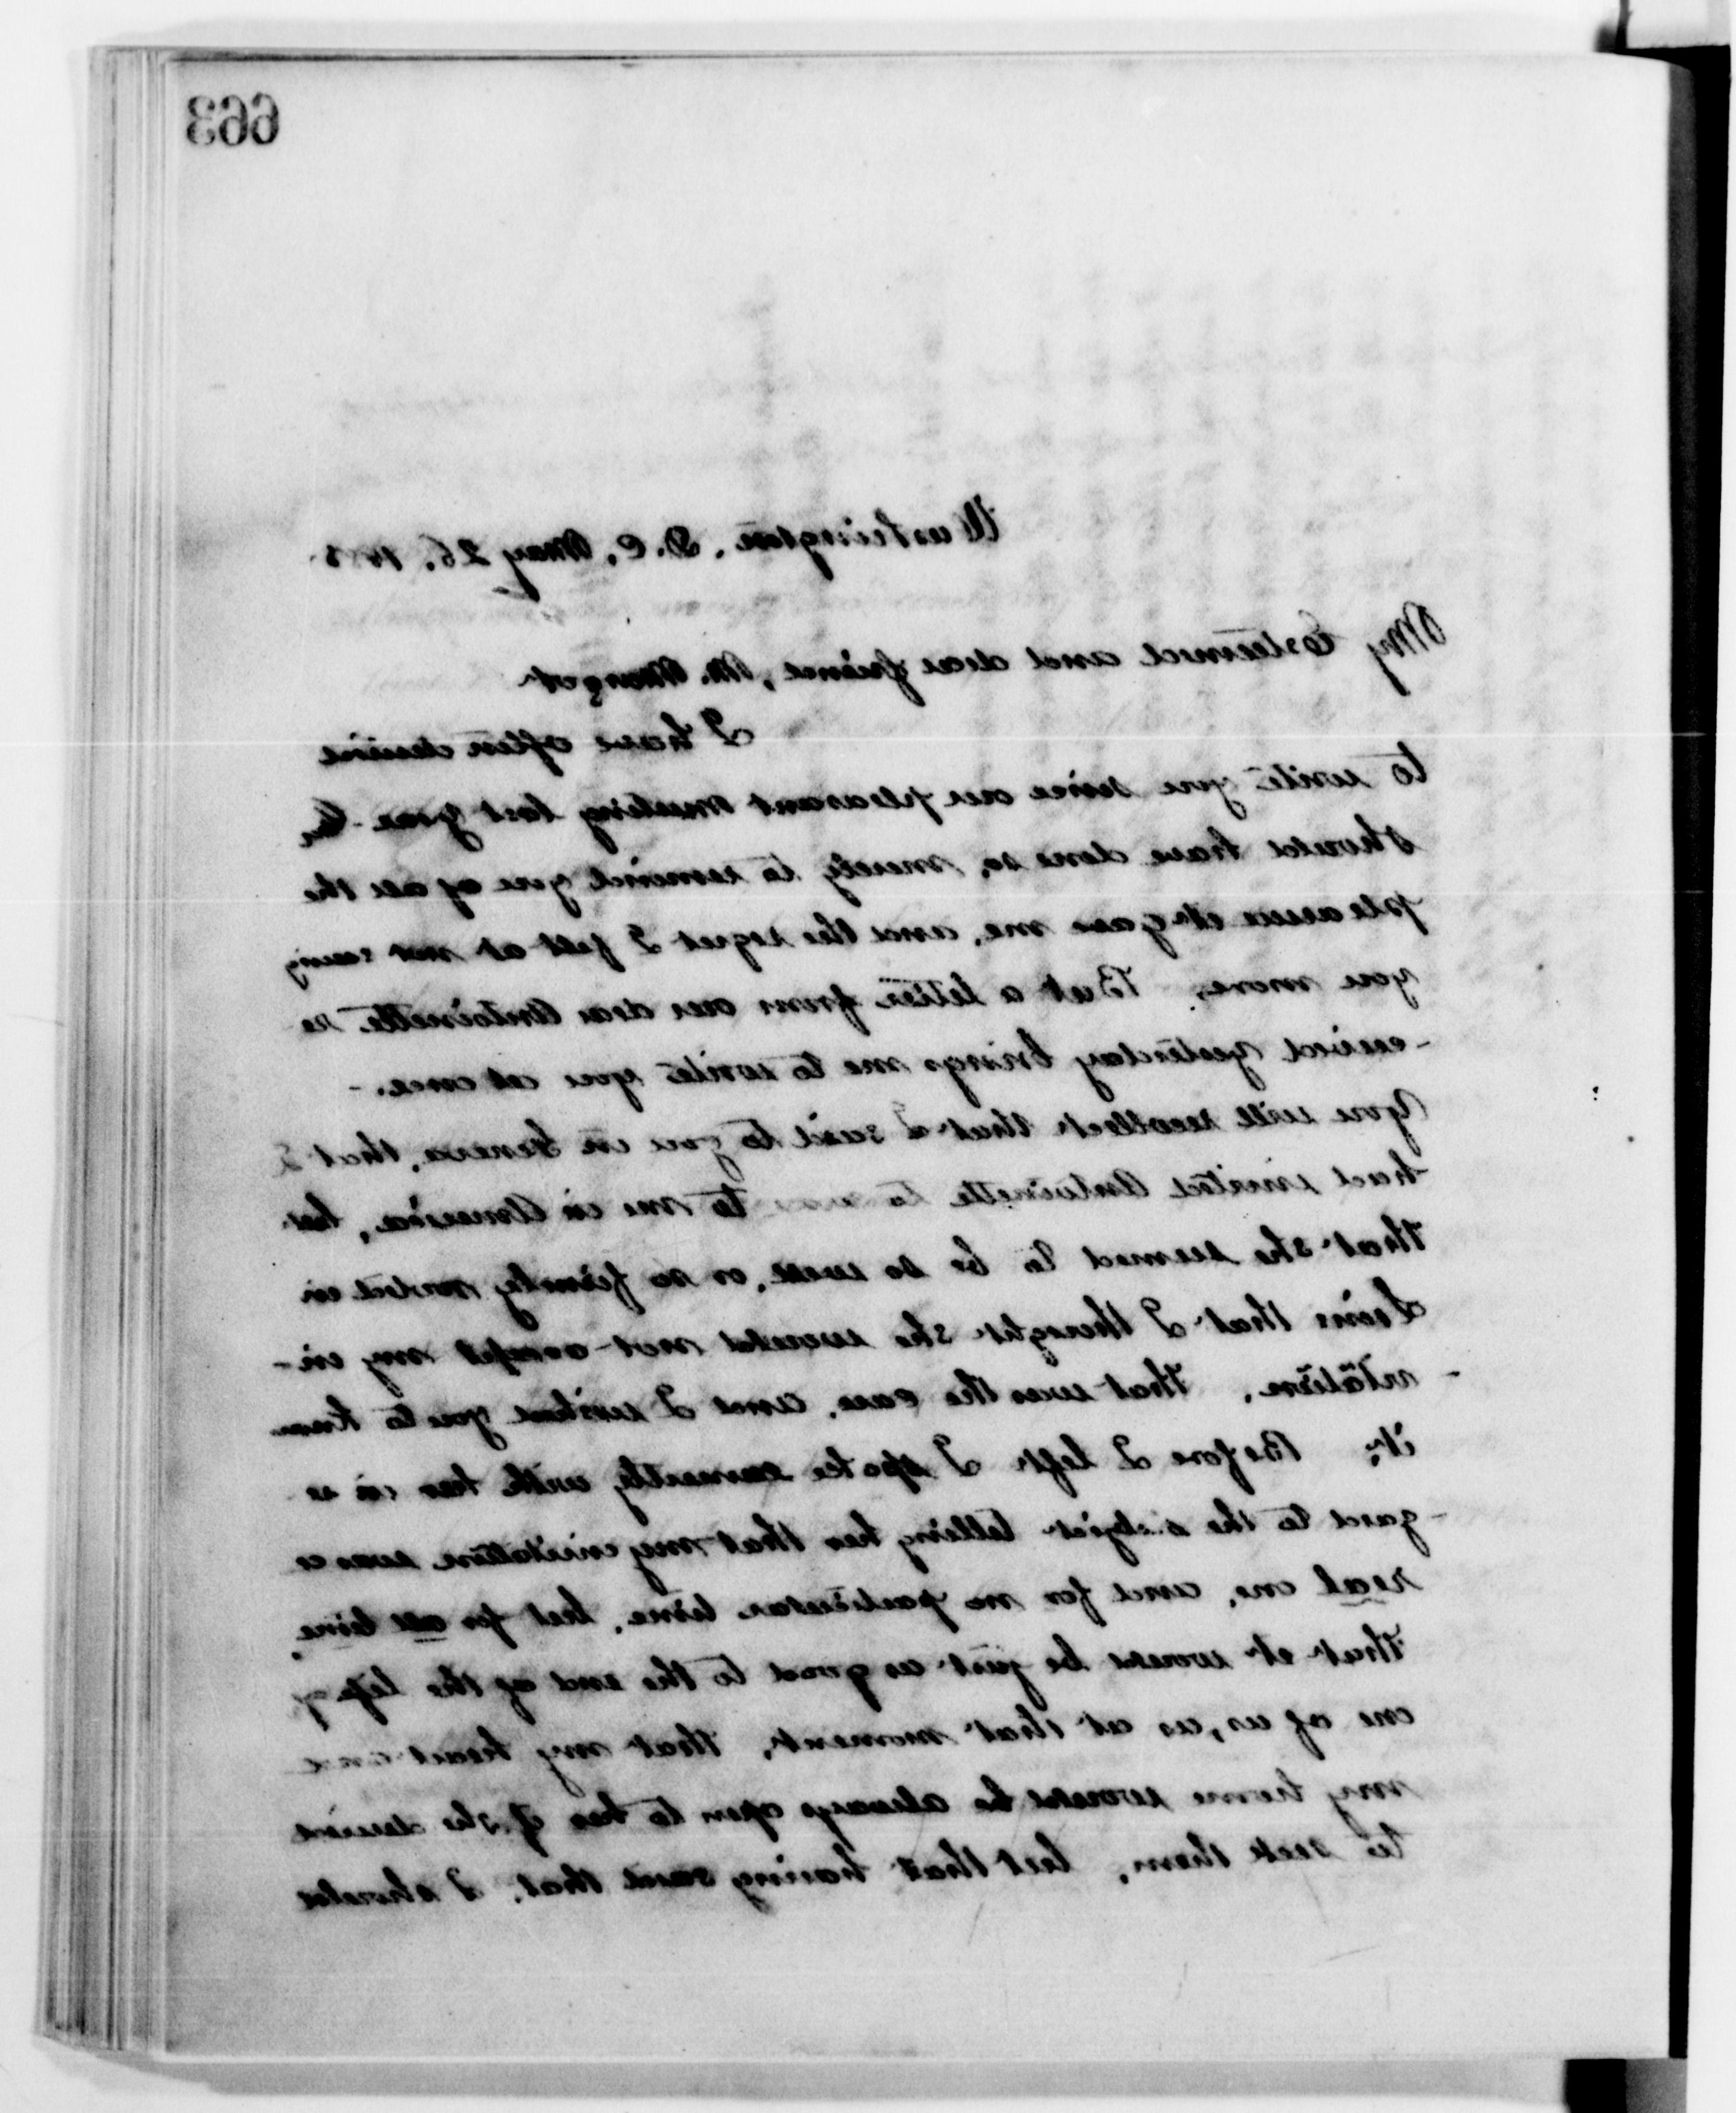 663
Washington. D.C. May 26. 188
My Esteemed and dear friend, M. Monget
I have often desired
to write you since our pleasant meeting last year &
should have done so, merely to remind you of all the
pleasure it gave me, and the regret I felt at not seeing
you more. But a letter from our dear Antoinette re
-ceived yesterday brings me to write you at once. -
You will recollect that I said to you in Geneva, that I
had invited Antoinette to to me in America, but
that she seemed to be so well, or so firmly rooted in
that I thought she would not accept my in-
-vitation. That was the case, and I wished you to know
it. Before I left I spoke earnestly with her in re
-gard to the subject telling her that my invitation was a
real one, and for no particular time, but for all time,
that it would be just as good to the end of the life of
one of us, as at that moment, that my heart and
my home would be always open to her if she desired
to seek them, but that having said that, I should